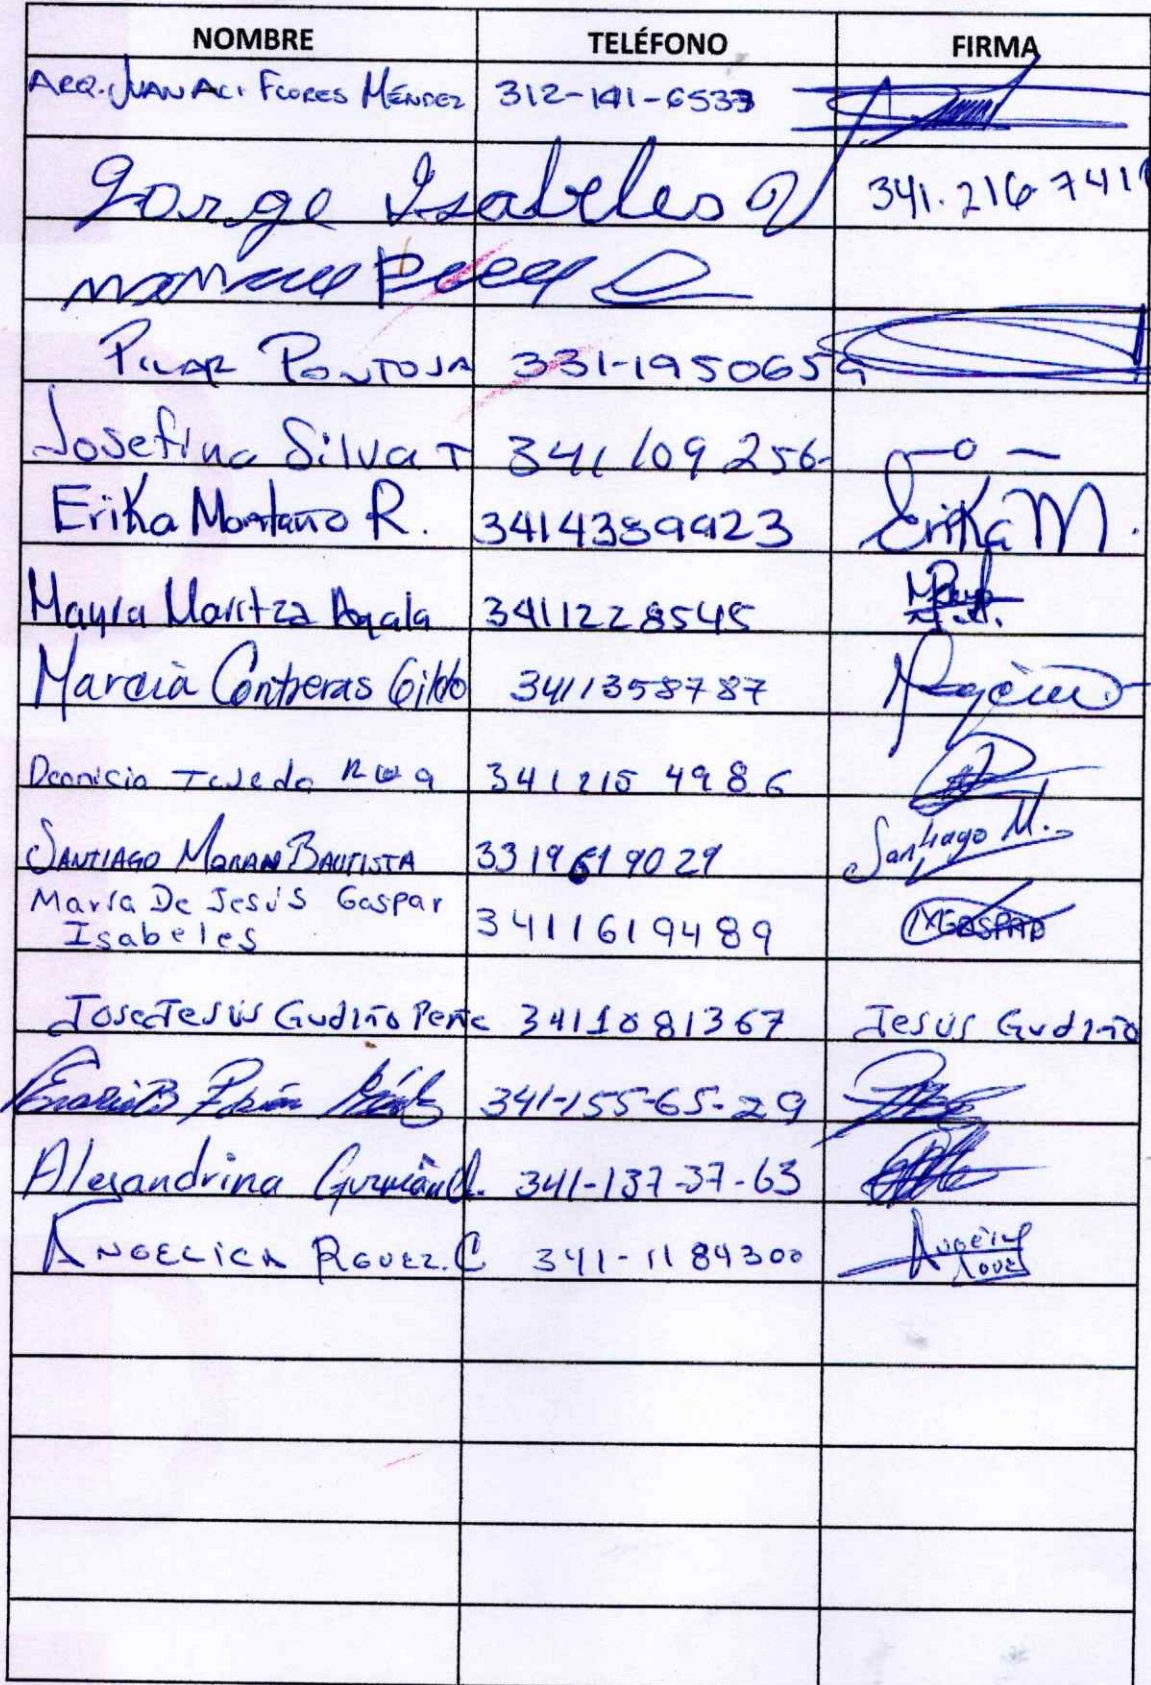 NOMBRE TELÉFONO FIRMA
ARQ. JUAN ACI FLORES MÉNDEZ 312-141-6533
Jorge Isabeles V 341.216-7411
PILAR PONTOJA 331-1950659
Josefina Silva T 341 109 256-
Erika Montaño R. 3414389923 Erika M.
Mayra Maritza Ayala 3411228545
Marcia Contreras Gildo 3411358787
341 215 4986
SANTIAGO MORAN BAUTISTA 3319619029 Santiago M.
María De Jesús Gaspar
Isabeles 34116619489 GASPAR
Jose Jesús Gudiño Peña 3411081367 Jesús Gudiño
341-155-65-29
Alejandrina Guzmán 341-137-37-63
ANGELICA RGUEZ. C 341-1184300